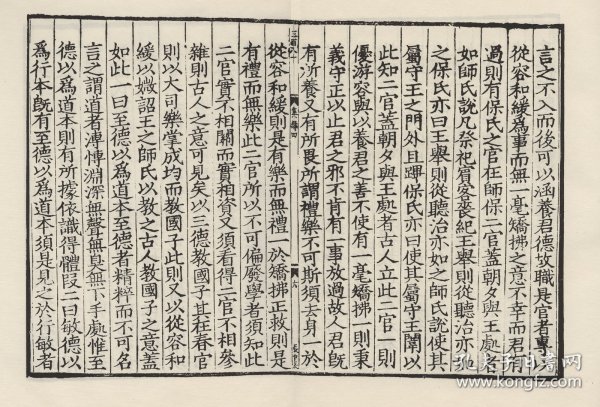 言之不入而後可以涵養君德故職是官者專以
從容和緩爲事而無一毫矯拂之意不幸而君有
過則有保氏之官在師保二官蓋朝夕與王處者
如師氏說凡祭祀賓客喪紀王舉則從聽治亦
之保氏亦曰王舉則從聽治亦如之師氏說使其
屬守王之門外且蹕保氏亦曰使其屬守王闈以
此知二官蓋朝夕與王處者古人立此二官一則
優游容與以養君之善不使有一毫矯拂一則秉
義守正以止君之邪不肯有一事放過故人君旣
有所養又有所畏所謂禮樂不可斯須去身一於
從容和緩則是有樂而無禮一於矯拂正救則是
有禮而無樂此二官所以不可偏廢學者須知此
二官實不相關而實相資又須看得二官不相參
雜則古人之意可見矣以三德教國子其在春官
則以大司樂掌成均而教國子此則又以從容和
緩以媺詔王之師氏以教之古人教國子之意蓋
如此一曰至德以爲道本至德者精粹而不可名
言之謂道者溥博淵深無聲無臭無下手處惟至
德以爲道本則有所據依識得體段二曰敏德以
爲行本旣有至德以爲道本須是見之於行敏者
孔夫子旧书网
www.kongfz.com